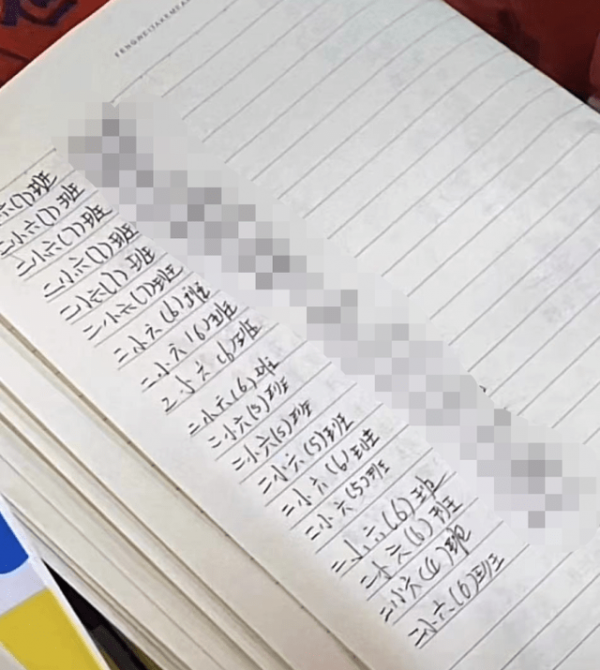 六(7)班
二小六(7)班
二小六(7)班
二小六(7)班
二小六(7)班
二小六(7)班
二小六(6)班
二小六(6)班
二小六(6)班
二小六(6)班
二小六(5)班
二小六(5)班
二小六(5)班
二小六(6)班
二小六(5)班
二小六(6)班
二小六(6)班
二小六(4)班
二小六(6)班